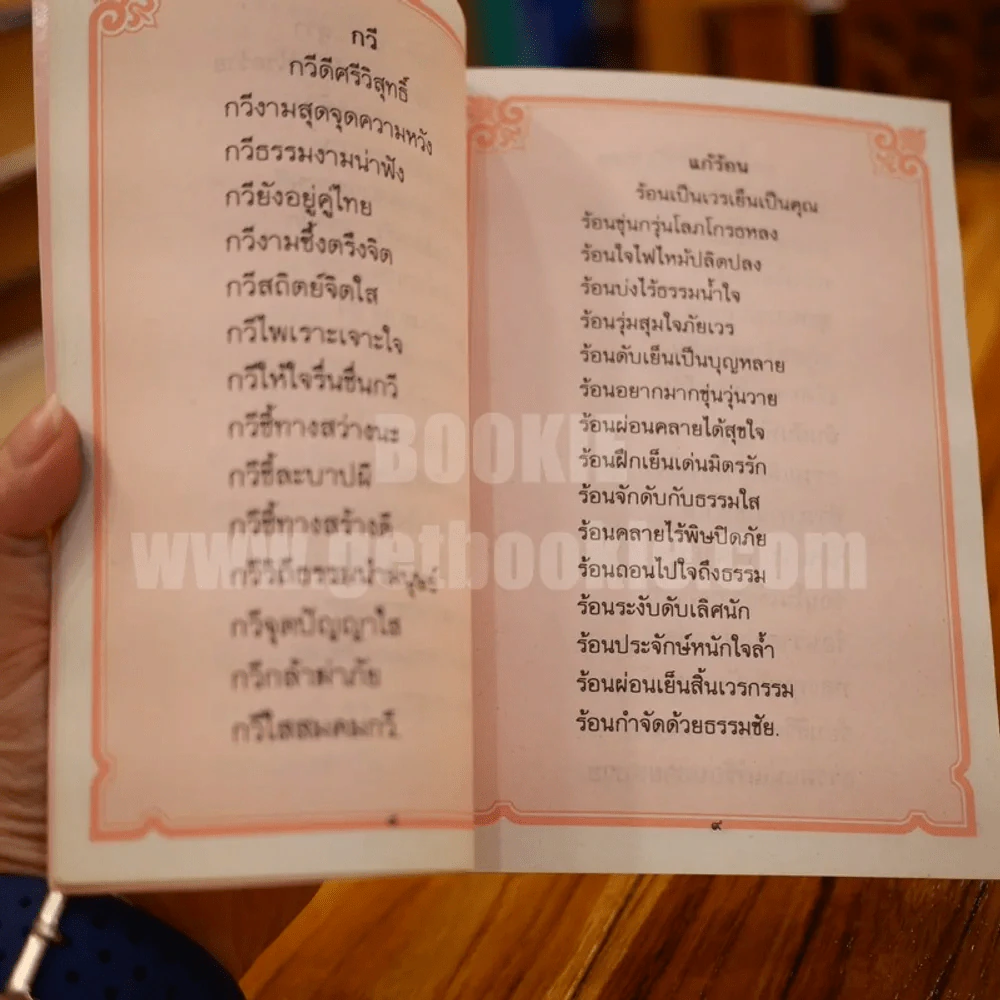 กวี
กวีดีศรีวิสุทธิ์
กวีงามสุดจุดความหวัง
กวีธรรมงามน่าฟัง
กวียังอยู่คู่ไทย
กวีงามซึ้งตรึงจิต
กวีสถิตย์จิตใส
กวีไพเราะเจาะใจ
กวีให้ใจรื่นชื่นกวี
กวีชี้ทางสว่างนะ
กวีชี้ละบาปผี
กวีชี้ทางสร้างดี
กวีวิถีธรรมนำมนุษย์
กวีจุดปัญญาใส
กวีกล้าฝ่าภัย
กวีใสสมคมกวี
๘
แก้ร้อน
ร้อนเป็นเวรเย็นเป็นคุณ
ร้อนขุ่นกรุ่นโลภโกรธหลง
ร้อนใจไฟไหม้ปลิดปลง
ร้อนบ่งไร้ธรรมน้ำใจ
ร้อนรุ่มสุมใจภัยเวร
ร้อนดับเย็นเป็นบุญหลาย
ร้อนอยากมากขุ่นวุ่นวาย
ร้อนผ่อนคลายได้สุขใจ
ร้อนฝึกเย็นเด่นมิตรรัก
ร้อนจักดับกับธรรมใส
ร้อนคลายไร้พิษปิดภัย
ร้อนถอนไปใจถึงธรรม
ร้อนระงับดับเลิศนัก
ร้อนประจักษ์หนักใจล้ำ
ร้อนผ่อนเย็นสิ้นเวรกรรม
ร้อนกำจัดด้วยธรรมชัย.
๙
BOOKIE
www.getbookie.com